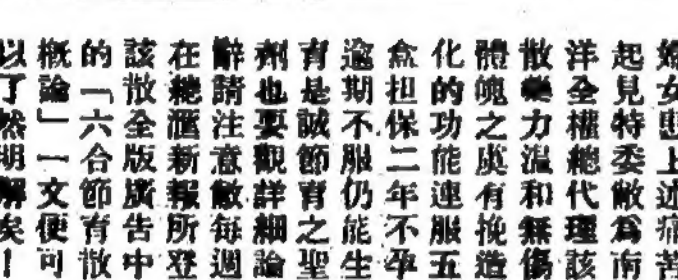 婦女患上述痛苦
起見特委敝爲南
洋全權總代理該
散藥力溫和無傷
體魄之虞有挽造
化的功能連服五
盒担保二年不孕
逾期不服仍能生
育是誠節育之聖
劑也要觀詳細論
辭請注意敝每週
在總滙新報所登
該散全版廣告中
的「六合節育散
概論」一文便可
以了然明解矣！